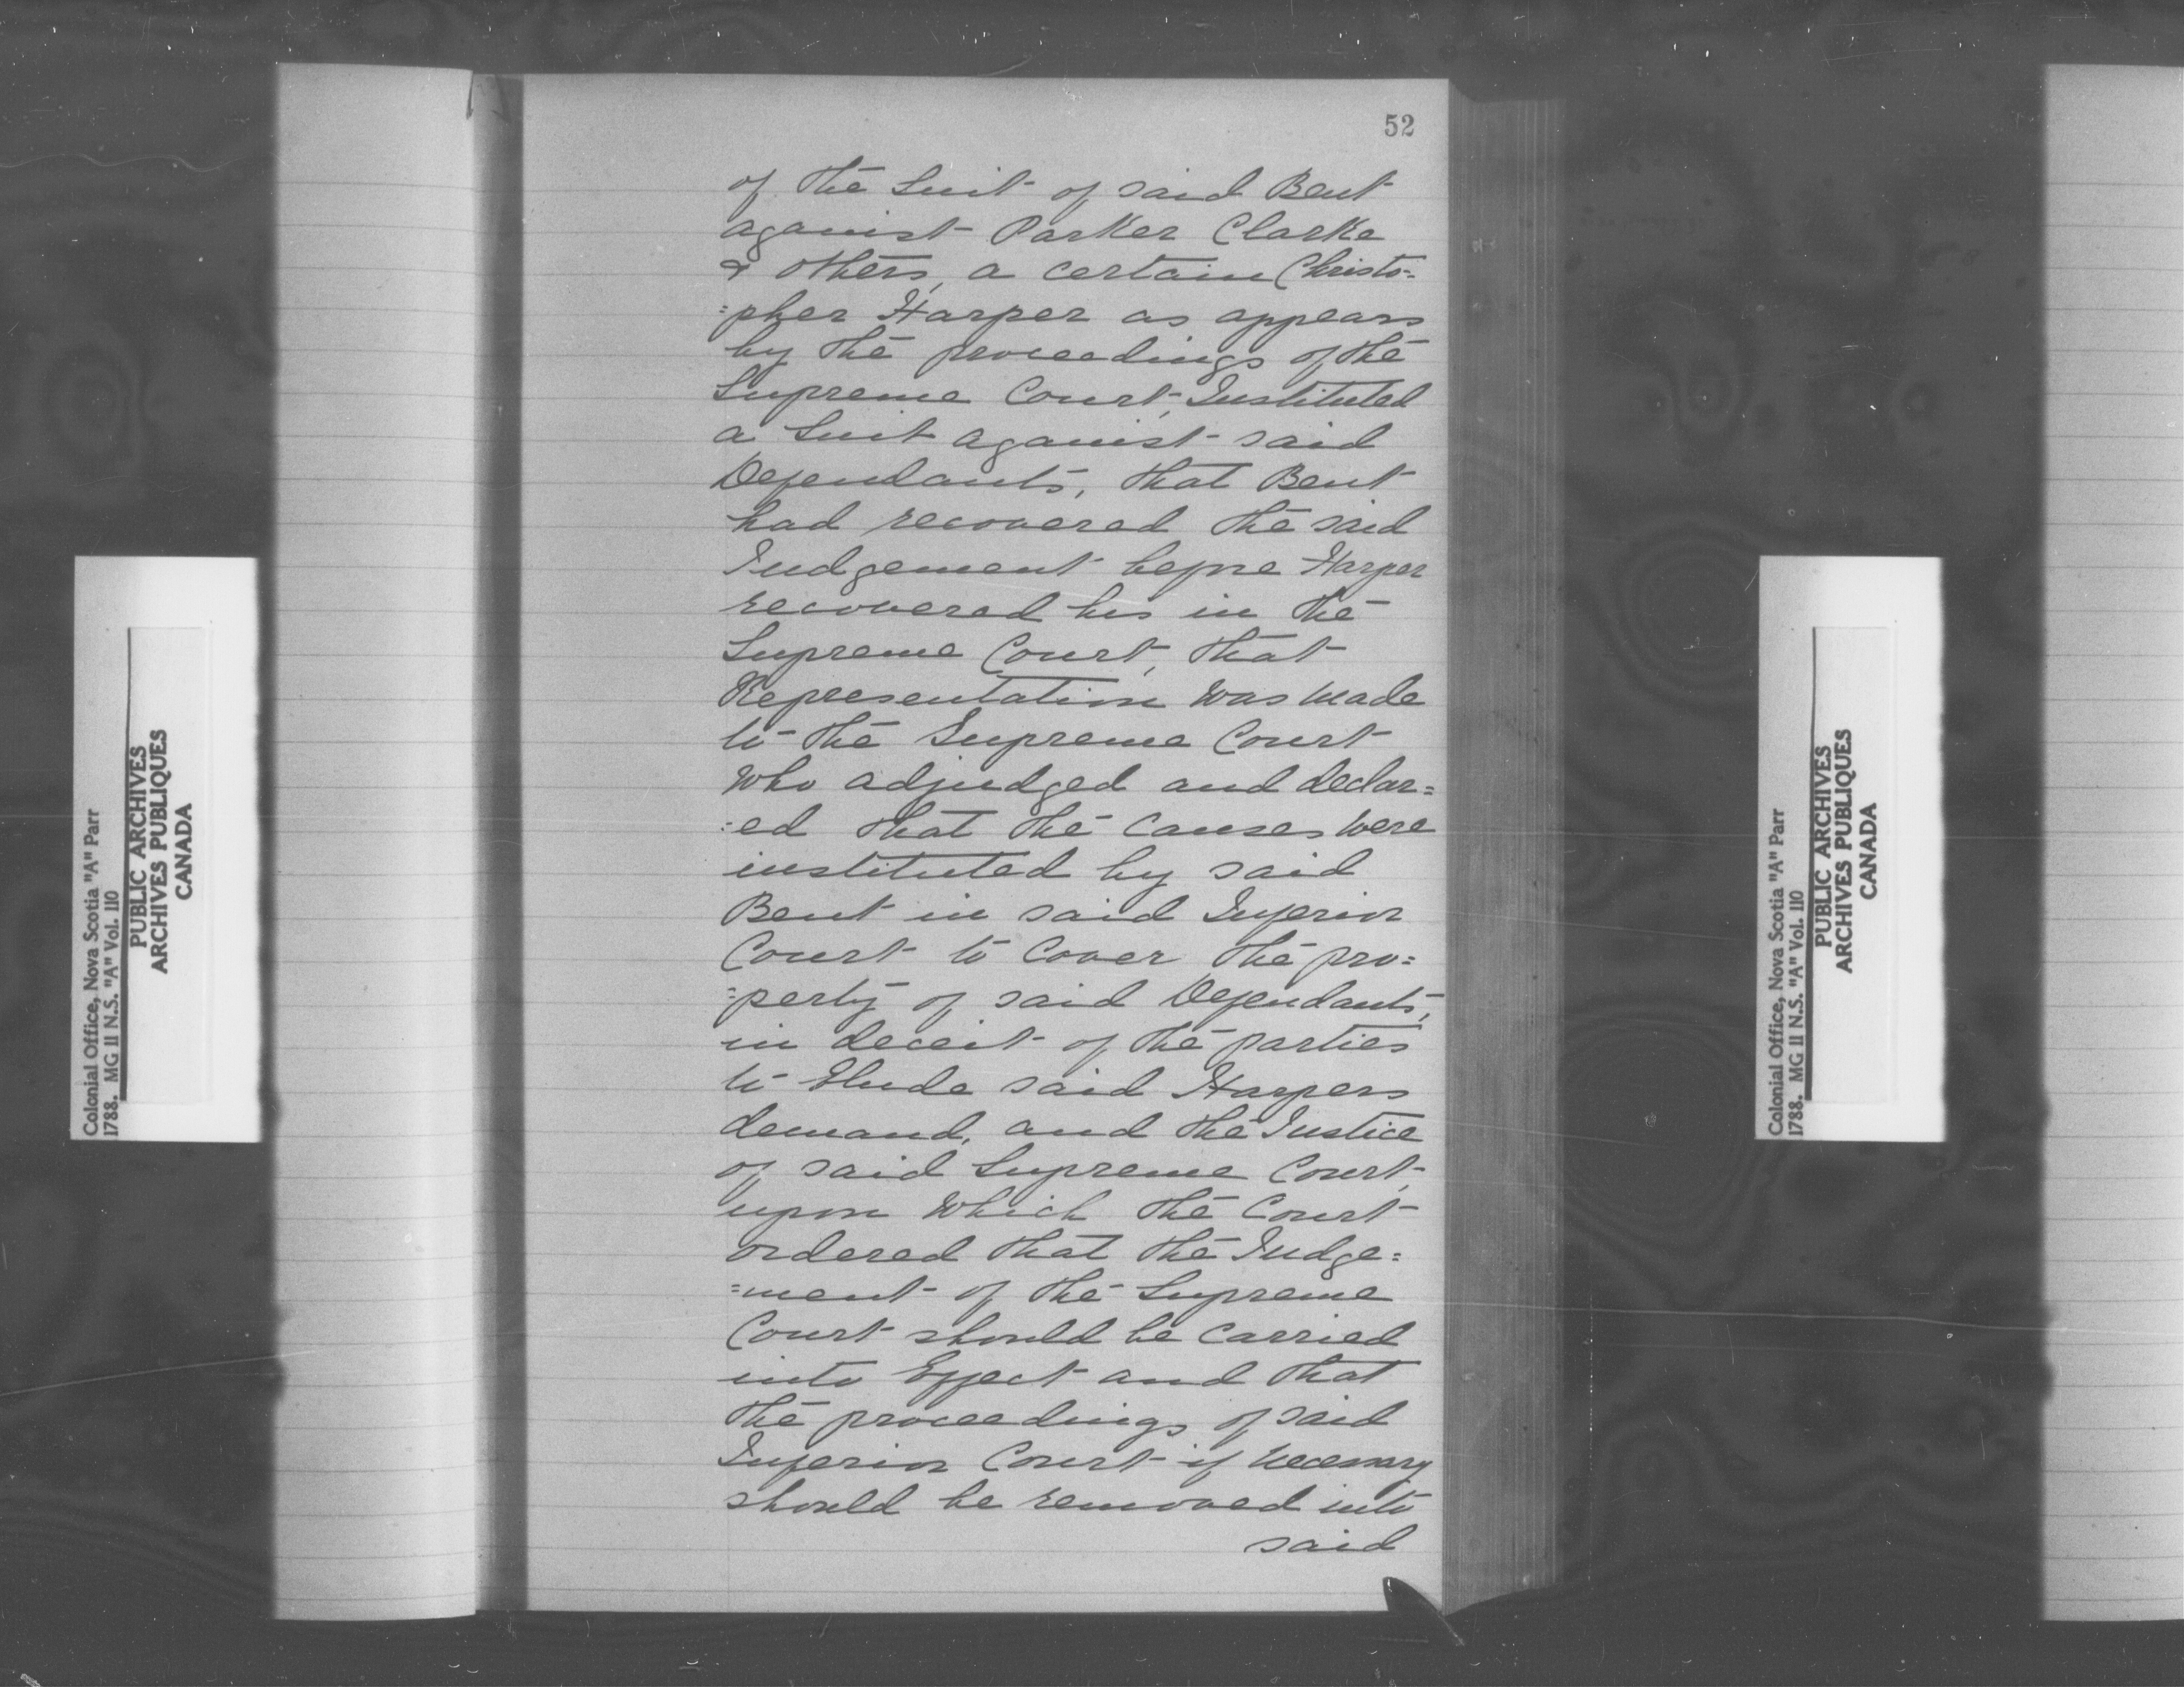 52
of the Suit of said Bent
against Parker Clarke
& others, a certain Christo=
=pher Harper as appears
by the proceedings of the
Supreme Court, Instituted
a Suit against said
Defendants, that Bent
had recovered the said
Judgement before Harper
recovered his in the
Supreme Court, that
Representation was made
to the Supreme Court
who adjudged and declar=
=ed that the Causes were
instituted by said
Bent in said Inferior
Court to Cover the pro=
=perty of said Defendants,
in deceit of the parties
to Elude said Harpers
demand, and the Justice
of said Supreme Court,
upon which the Court
ordered that the Judge=
=ment of the Supreme
Court should be Carried
into Effect and that
the proceedings of said
Inferior Court if necessary
should be removed into
said
Colonial Office, Nova Scotia "A" Parr
1788. MG 11 N.S. "A" Vol. 110
PUBLIC ARCHIVES
ARCHIVES PUBLIQUES
CANADA
Colonial Office, Nova Scotia "A" Parr
1788. MG 11 N.S. "A" Vol. 110
PUBLIC ARCHIVES
ARCHIVES PUBLIQUES
CANADA